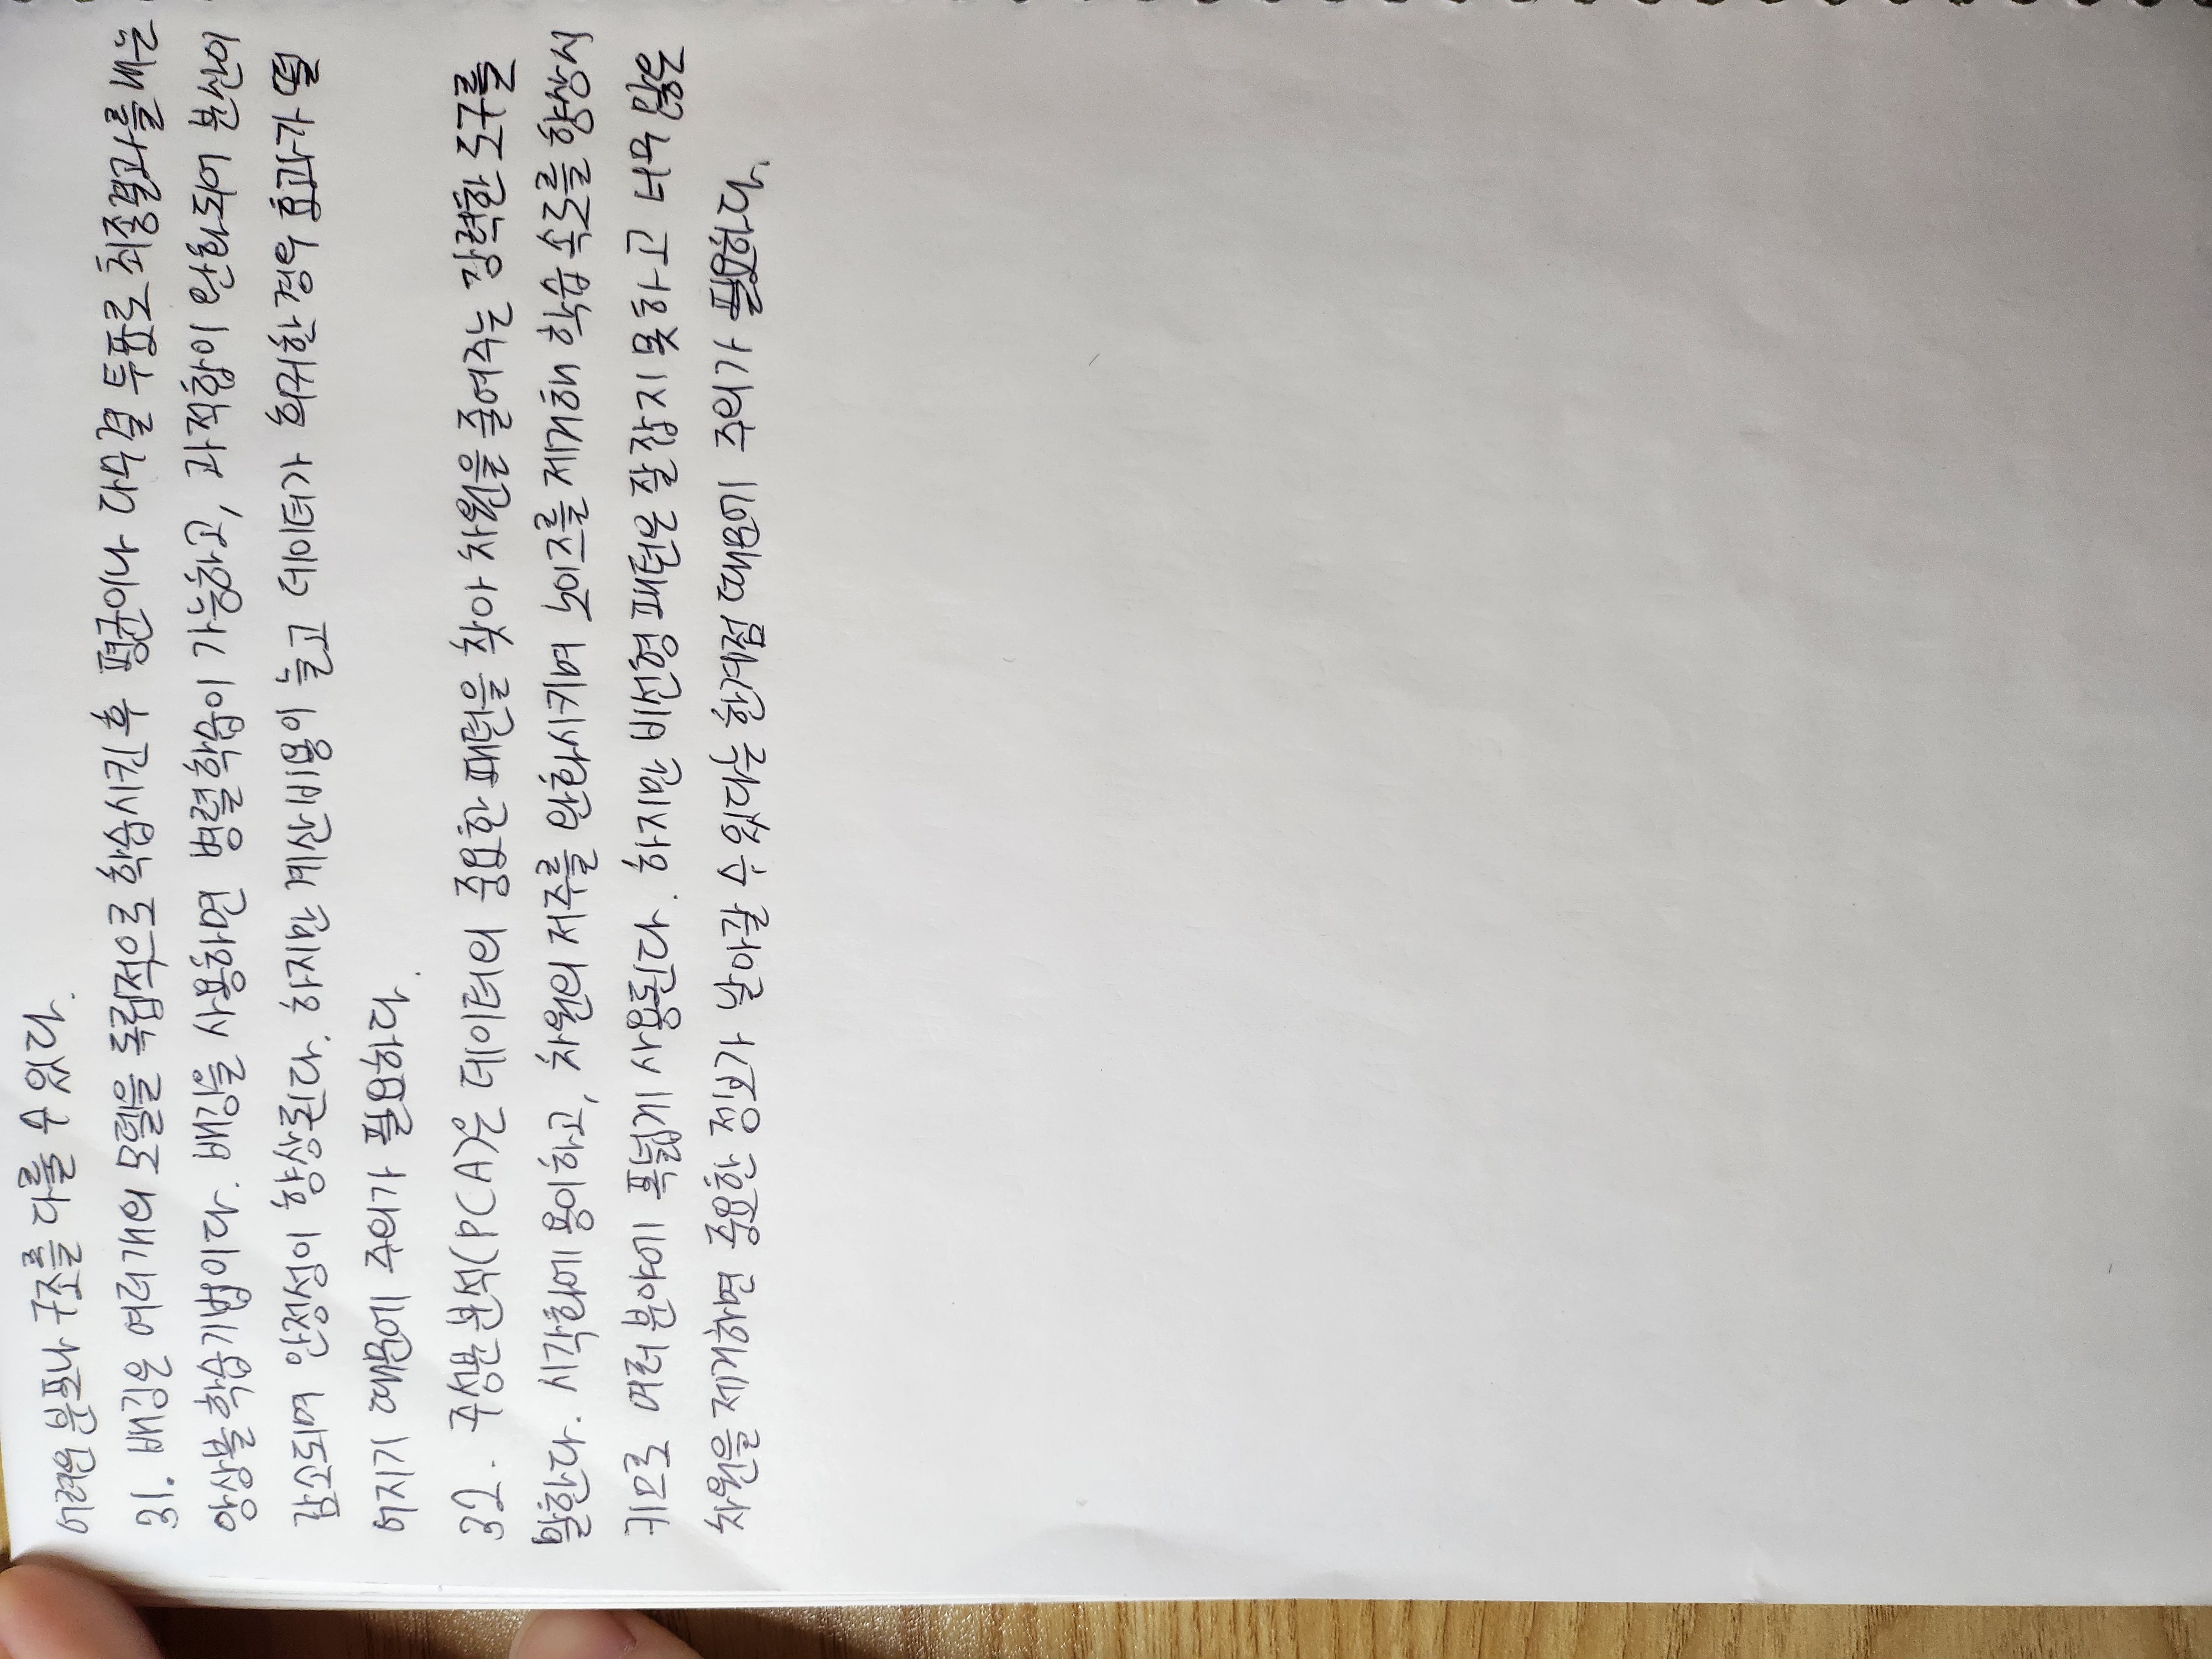 어려운 분포나 구조를 다룰 수 있다.
31. 배깅은 여러개의 모델을 독립적으로 학습시킨 후 평균이나 다수결 투표로 최종결과를 내는
앙상블 학습기법이다. 배깅을 사용하면 병렬학습이 가능하고, 과적합이 완화되어 분산이
감소되며 안정성이 향상된다. 하지만 계산비용이 늘고 데이터가 희귀한경우 효과가 떨
어지기 때문에 주의가 필요하다.
32. 주성분 분석(PCA)은 데이터의 중요한 패턴을 찾아 차원을 줄여주는 강력한 도구를
말한다. 시각화에 용이하고, 차원의 저주를 완화시키며 노이즈를 제거해 학습 속도를 향상시
키므로 여러 분야에 폭넓게 사용된다. 하지만 비선형 패턴은 잘 잡지 못하고 너무 많은
차원을 제거하면 중요한 정보가 날아갈 수 있다는 한계점 때문에 주의가 필요하다.